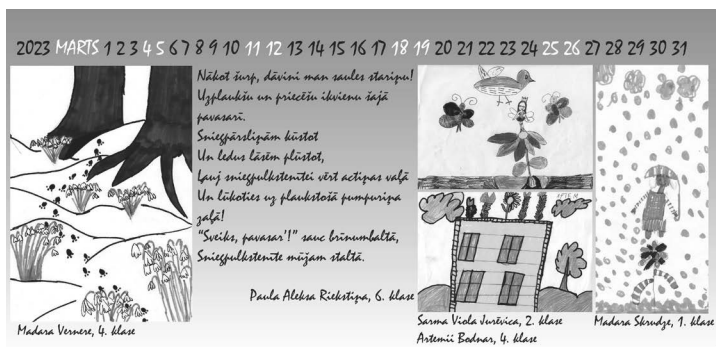 2023 MARTS 1 2 3 4 5 6 7 8 9 10 11 12 13 14 15 16 17 18 19 20 21 22 23 24 25 26 27 28 29 30 31
Nākot šurp, dāvini man saules stariņu!
Uzplaukšu un priecēšu ikvienu šajā
pavasarī.
Sniegpārsliņām kūstot
Un ledus lāsēm plūstot,
Ļauj sniegpulkstenītei vērt actiņas vaļā
Un lūkoties uz plaukstošā pumpuriņa
zaļā!
"Sveiks, pavasar'!" sauc brīnumbaltā,
Sniegpulkstenīte mūžam staltā.
Paula Aleksa Riekstiņa, 6. klase
Madara Vernere, 4. klase
Sarma Viola Jurēvica, 2. klase
Artemii Bodnar, 4. klase
Madara Skrudze, 1. klase